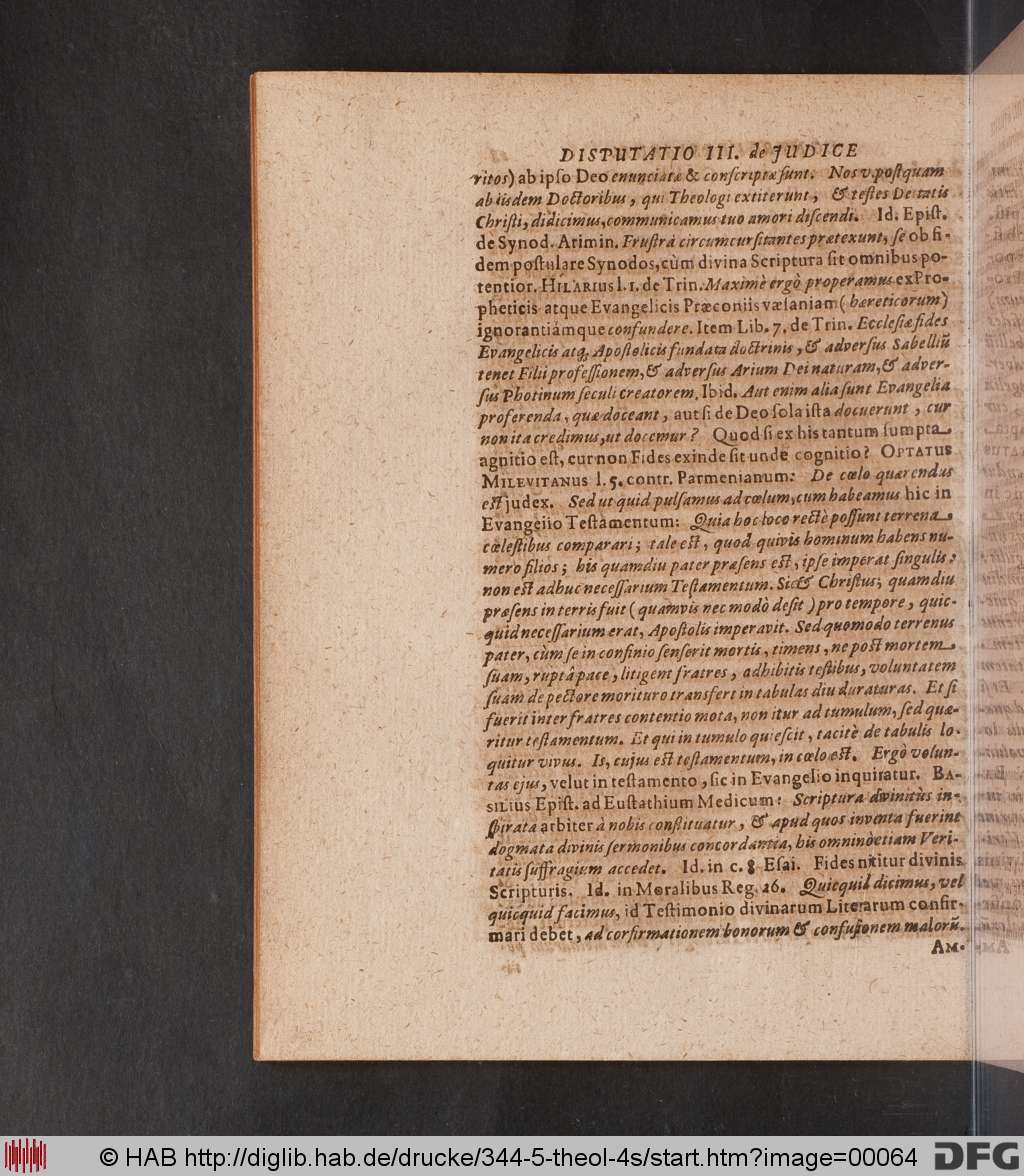 DISPUTATIO III. de JUDICE
ritos) ab ipſo Deo enunciata & conſcripta ſunt. Nos v. poſtquam
ab iisdem Doctoribus, qui Theologi extiterunt, & teſtes Deitatis
Chriſti, didicimus, communicamus tuo amori diſcendi. Id. Epiſt.
de Synod. Arimin. Fruſtrà circumcurſitantes prætexunt, ſe ob fi-
dem poſtulare Synodos, cùm divina Scriptura ſit omnibus po-
tentior. HILARIUS l. 1. de Trin. Maximè ergò properamus ex Pro-
pheticis atque Evangelicis Præconiis væſaniam (hæreticorum)
ignorantiámque confundere. Item Lib. 7. de Trin. Eccleſiæ fides
Evangelicis atq; Apoſtolicis fundata doctrinis, & adverſus Sabelliũ
tenet Filii profeſſionem, & adverſus Arium Dei naturam, & adver-
ſus Photinum ſeculi creatorem. Ibid. Aut enim alia ſunt Evangelia
proferenda, quæ doceant, aut ſi de Deo ſola iſta docuerunt, cur
non ita credimus, ut docemur? Quod ſi ex his tantum ſumpta
agnitio eſt, cur non Fides exinde ſit unde cognitio? OPTATUS
MILEVITANUS l. 5. contr. Parmenianum: De cœlo quærendus
eſt judex. Sed ut quid pulſamus ad cœlum, cum habeamus hic in
Evangelio Teſtamentum: Quia hoc loco rectè poſſunt terrena
cœleſtibus comparari; tale eſt, quod quivis hominum habens nu-
mero filios; his quamdiu pater præſens eſt, ipſe imperat ſingulis:
non eſt adhuc neceſſarium Teſtamentum. Sic & Chriſtus; quamdiu
præſens in terris fuit (quamvis nec modò deſit) pro tempore, quic-
quid neceſſarium erat, Apoſtolis imperavit. Sed quomodo terrenus
pater, cùm ſe in confinio ſenſerit mortis, timens, ne poſt mortem
ſuam, ruptâ pace, litigent fratres, adhibitis teſtibus, voluntatem
ſuam de pectore morituro transfert in tabulas diu duraturas. Et ſi
fuerit inter fratres contentio mota, non itur ad tumulum, ſed quæ-
ritur teſtamentum. Et qui in tumulo quieſcit, tacitè de tabulis lo-
quitur vivus. Is, cujus eſt teſtamentum, in cœlo eſt. Ergò volun-
tas ejus, velut in teſtamento, ſic in Evangelio inquiratur. BA-
SILIUS Epiſt. ad Euſtathium Medicum: Scriptura divinitùs in-
ſpirata arbiter à nobis conſtituatur, & apud quos inventa fuerint
dogmata divinis ſermonibus concordantia, his omninò etiam Veri-
tatis ſuffragium accedet. Id. in c. 8 Eſai. Fides nititur divinis
Scripturis. Id. in Moralibus Reg. 26. Quicquid dicimus, vel
quicquid facimus, id Teſtimonio divinarum Literarum confir-
mari debet, ad corfirmationem bonorum & confuſionem malorũ.
AM-
© HAB http://diglib.hab.de/drucke/344-5-theol-4s/start.htm?image=00064
DFG